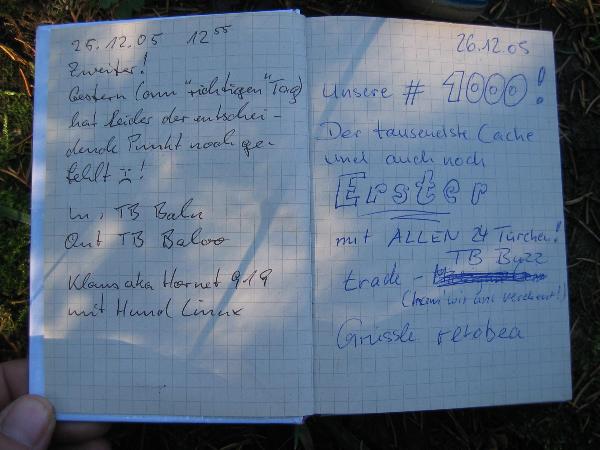 25.12.05 12⁵⁵
Zweiter!
Gestern (am "richtigen" Tag)
hat leider der entschei-
dende Punkt noch ge-
fehlt ☹!
In: TB Balu
Out TB Baloo
Klaus aka Hornet 919
mit Hund Linux
26.12.05
Unsere # 1000!
Der tausendste Cache
und auch noch
Erster
mit ALLEN 24 Türchen!
TB Buzz
trade -
(ham wir uns verdient!)
Grüssle retobea